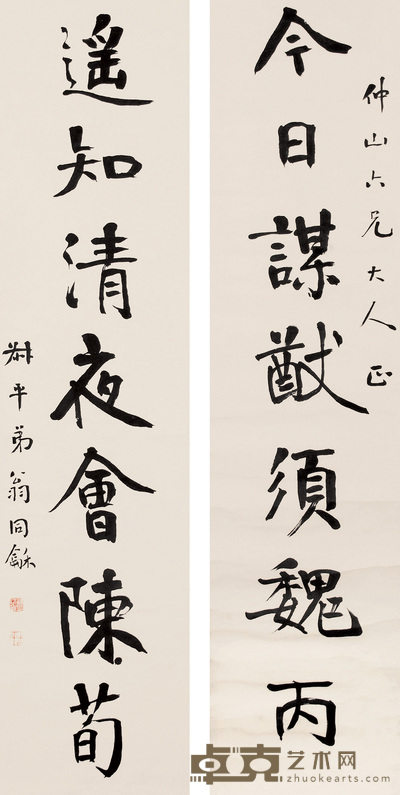 仲山六兄大人正
今日謀猷須魏丙
遥知清夜會陳荀
尗平弟翁同龢
卓克艺术网
zhuokearts.com